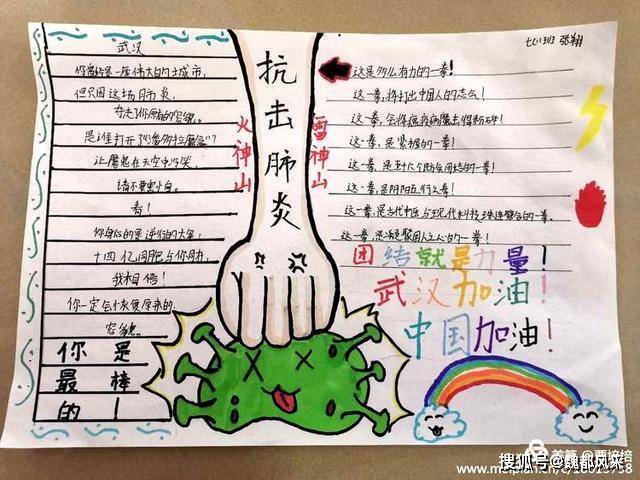 七(1)班 张翔
武汉
你曾经是一座伟大的城市,
但只因这场肺炎,
夺走了你原始的容貌。
是谁打开了“潘多拉魔盒”?
让魔鬼在天空中
请不要害怕。
看!
你身后的是逆行的大军,
十四亿同胞与你同力,
我相信!
你一定会恢复原来的
容貌。
你是
最棒
的!
抗击肺炎
火神山
雷神山
这是多么有力的一拳!
这一拳,将打出中国人的志气!
这一拳,会将瘟疫病魔击得粉碎!
这一拳,是紧握的一拳!
这一拳,是五十六个民族团结的一拳!
这一拳,是阴阳五行之拳!
这一拳,是古代中医与现代科技珠联璧合的一拳。
这一拳,是凝聚国人之心的一拳!
团结就是力量!
武汉加油!
中国加油!
搜狐号@魏都风采